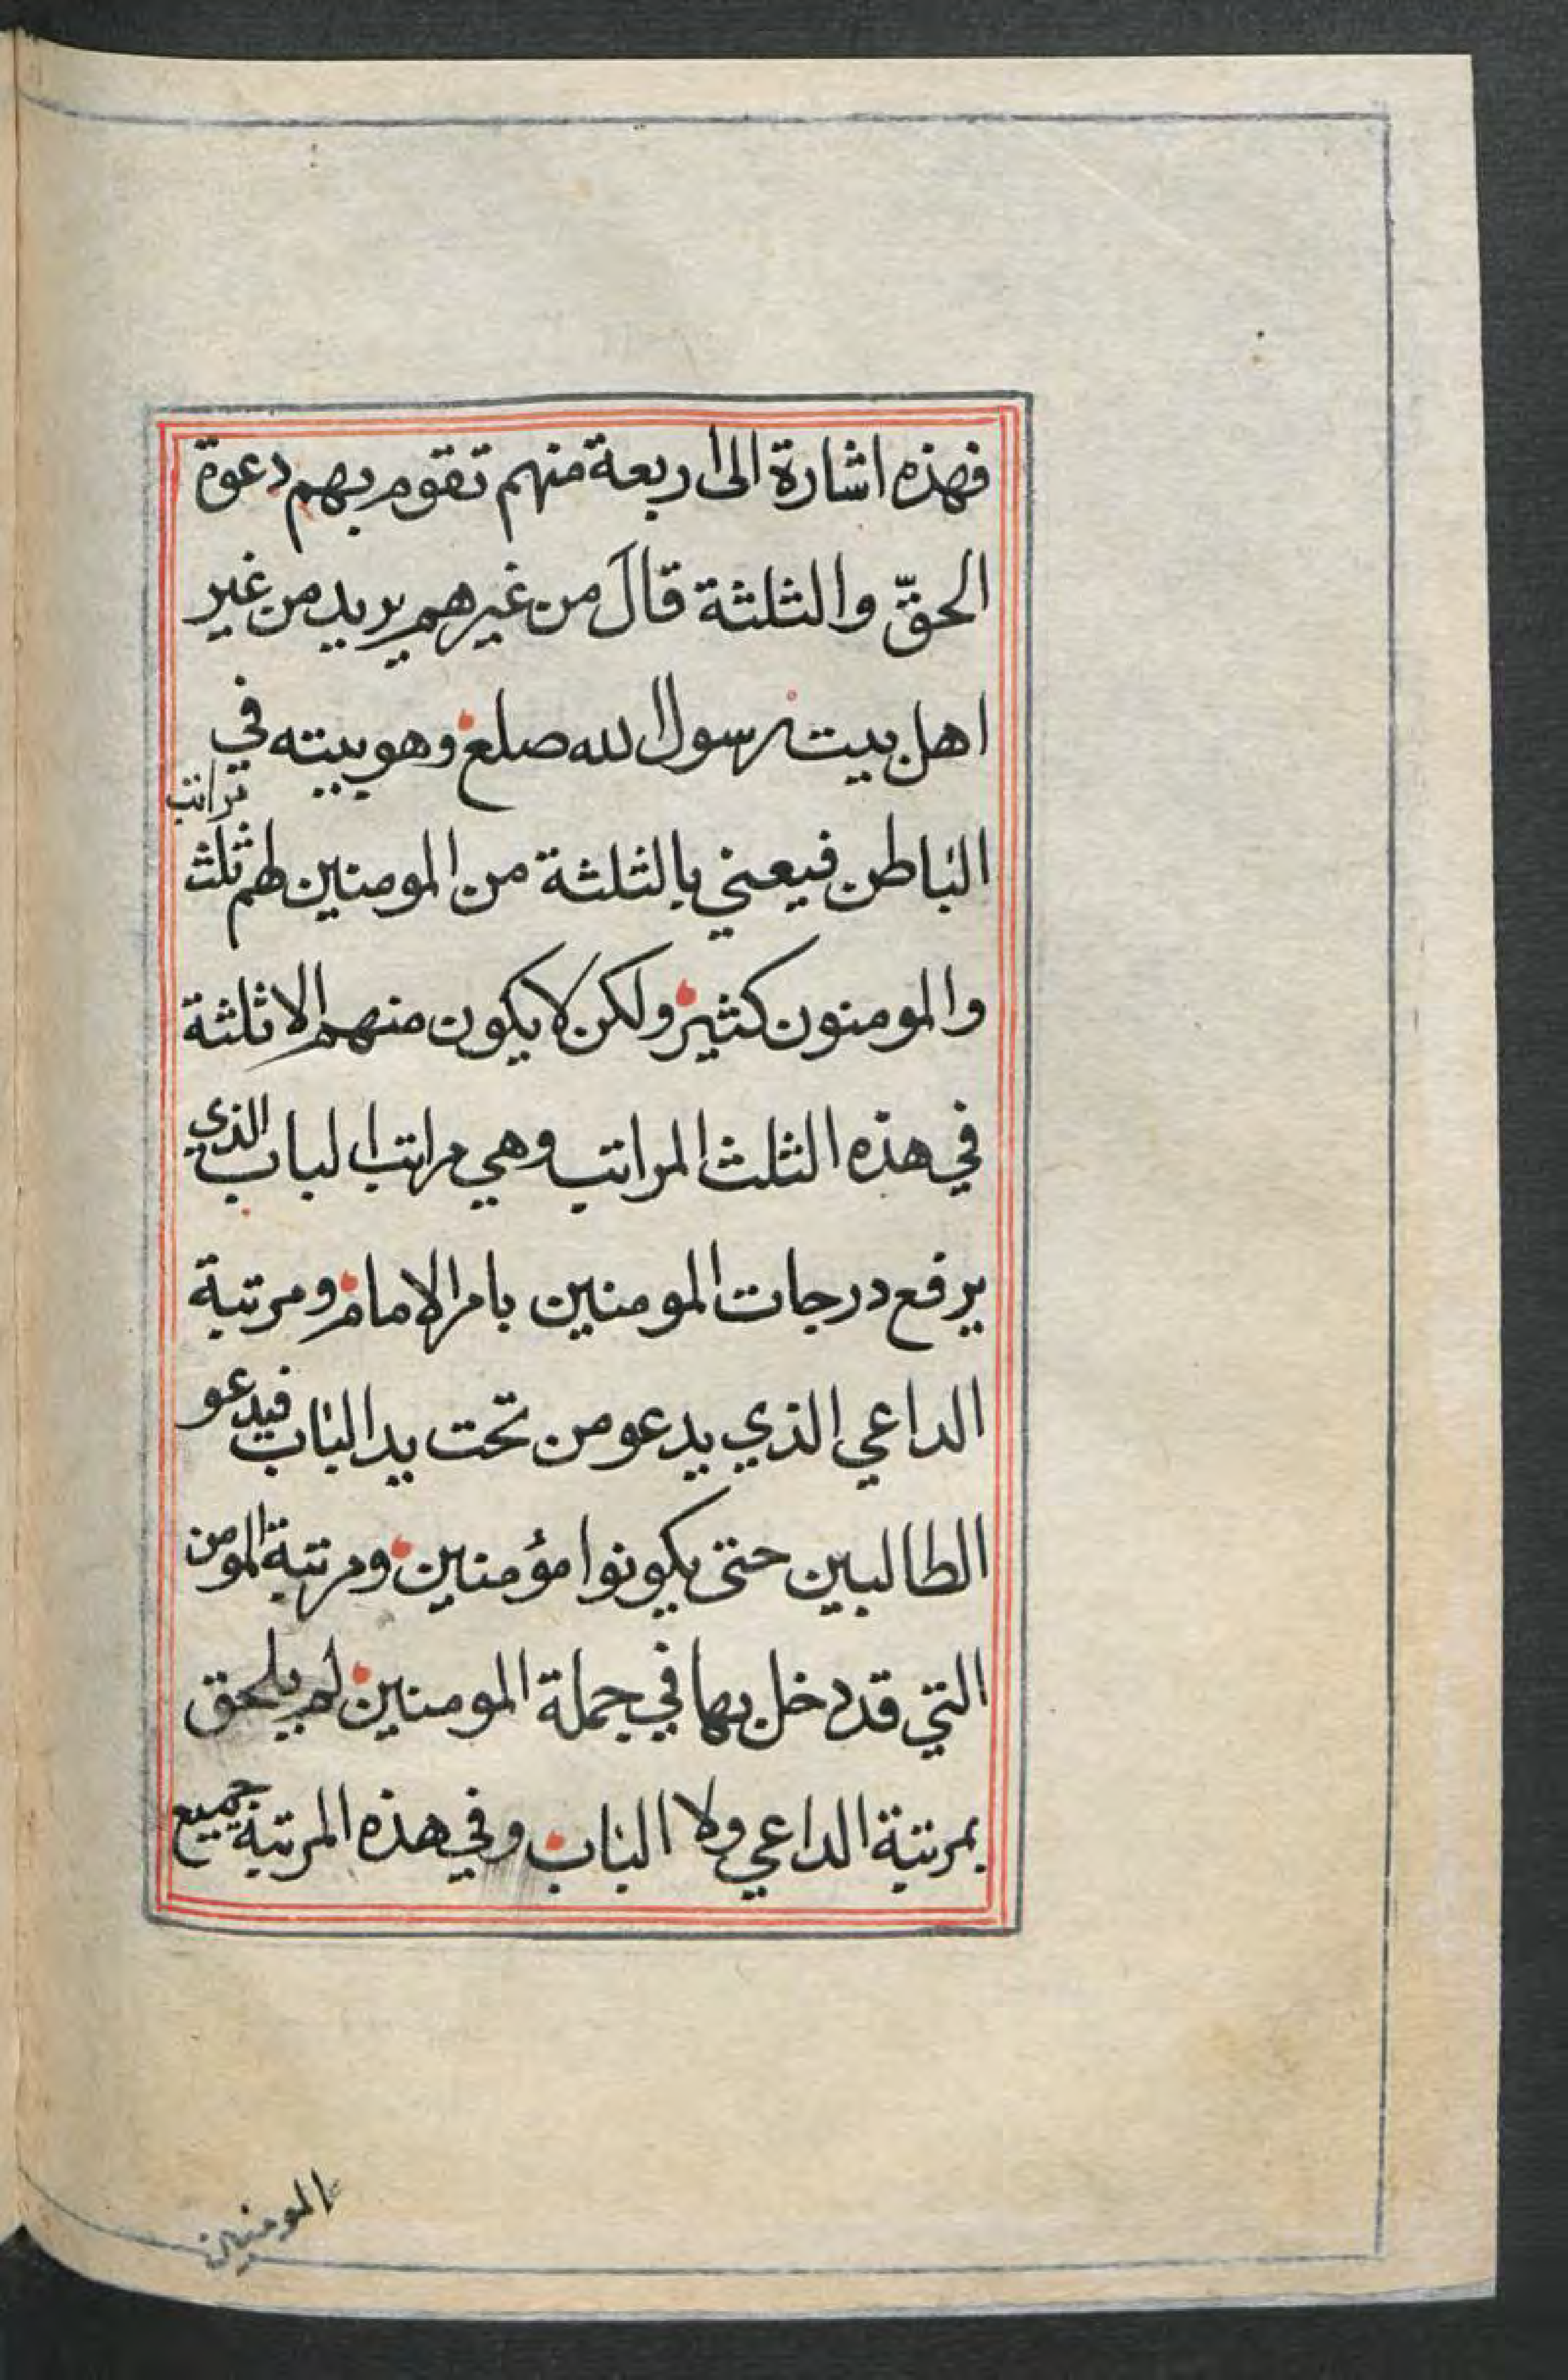 فهذه اشارة الى اربعة منهم تقوم بهم دعوة
الحقّ والثلثة قالَ من غيرهم يريد من غير
اهل بيت رسول الله صلع وهو بيته في
الباطن فيعني بالثلثة من المومنين لهم ثلث مراتب
والمومنون كثير ولكن لا يكون منهم الا ثلثة
في هذه الثلث المراتب وهي مراتب الباب الذي
يرفع درجات المومنين بامر الامام ومرتبة
الداعي الذي يدعو من تحت يد الباب فيدعو
الطالبين حتى يكونوا مؤمنين ومرتبة المومن
التي قد دخل بها في جملة المومنين لم يلحق
بمرتبة الداعي ولا الباب وفي هذه المرتبة جميع
المومنين